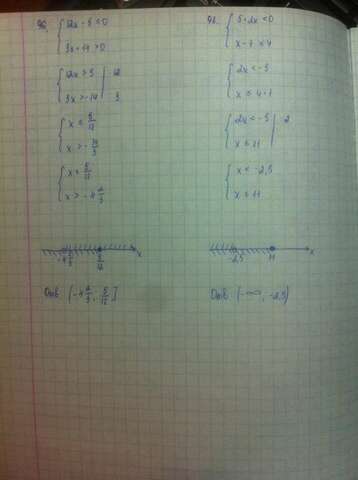 12x - 5 ≤ 0
3x + 14 > 0
3x > -14 | 3
x ≤ 5/12
x > - 14/3
x ≤ 5/12
x > - 4 2/3
-4 2/3 5/12 x
Отв (-4 2/3; 5/12]
5 + 2x < 0
x - 7 ≤ 4
2x < -5
x ≤ 4+7
2x < -5 | 2
x ≤ 11
x < -2,5
x ≤ 11
-2,5 11 x
Отв (-∞; -2,5)